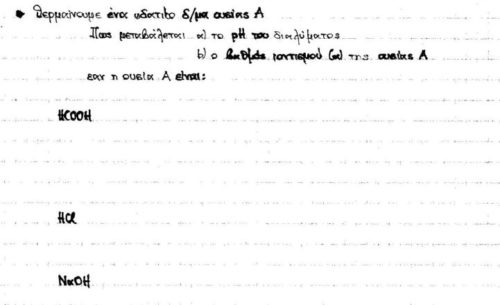 • Θερμαίνουμε ένα υδατικό δ/μα ουσίας Α
Πως μεταβάλλεται α) το pH του διαλύματος
b) ο βαθμός ιοντισμού (α) της ουσίας Α
εαν η ουσία Α είναι:
HCOOH
HCl
NaOH